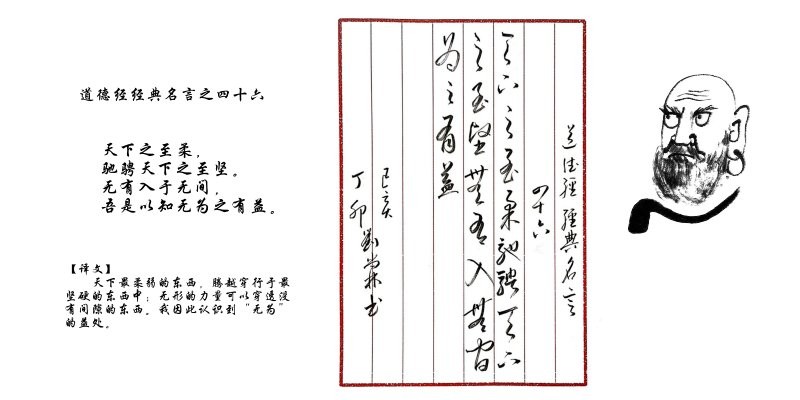 道德经经典名言之四十六
天下之至柔，
驰骋天下之至坚。
无有入于无间，
吾是以知无为之有益。
【译文】
天下最柔弱的东西，腾越穿行于最
坚硬的东西中；无形的力量可以穿透没
有间隙的东西。我因此认识到“无为”
的益处。
道德經經典名言
四十六
天下之至柔馳騁天下
之至堅無有入無間
為之有益
己亥
丁卯劉尚林书